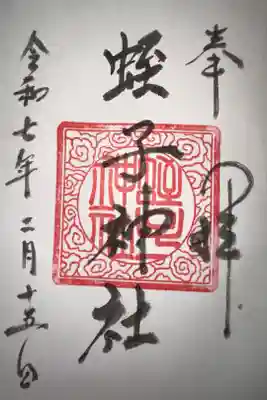 奉拝
蛭子神社
令和七年二月十五日